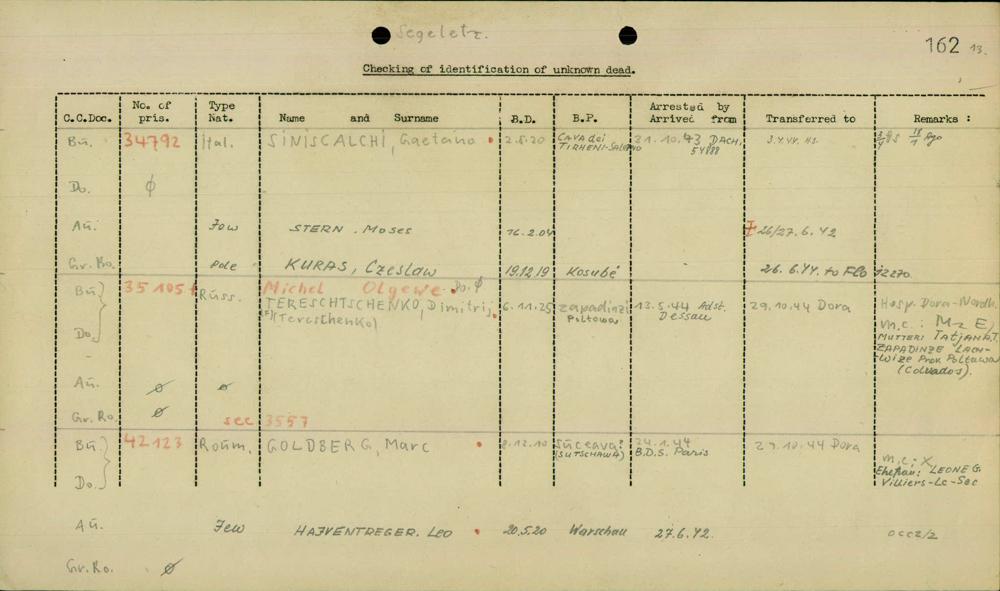 Segeletz.
162 13.
Checking of identification of unknown dead.
C.C.Doc. No. of pris. Type Nat. Name and Surname B.D. B.P. Arrested by Arrived from Transferred to Remarks :
Bu. 34792 Ital. SINISCALCHI, Gaetano 2.8.20 CAVA dei TIRHENI-SALERNO 31.10.43 DACH. 54888
Do. ø
Au. Jew STERN . Moses 16.2.04 26/27.6.42
Gr.Ro. Pole KURAS, Czeslaw 19.12.19 Kosubé 26.6.44 to Flo 12220
Bu} 35105 Russ. Michel Olgewe Do. ø
TERESCHTSCHENKO, Dimitrij 6.11.25 zapadinzi Poltowa 13.5.44 Adst. Dessau 29.10.44 Dora Hosp. Dora-Nordh.
(F)(Tereschenko)
Do. m.c.: M2 E,
MUTTER: Tatjana T.
ZAPADINZE
(Colvados).
Au. ø ø
Gr.Ro. ø sec 3557
Bu} 42123 Roum. GOLDBERG, Marc 8.12.10 Suceava: (SUTSCHAWA) 24.1.44 B.D.S. Paris 29.10.44 Dora
Do. m.c: X
Ehefrau: LEONE G.
Villiers-Le-Sec
Au. Jew HAJVENTREGER. Leo 20.5.20 Warschau 27.6.42. occ2/2
Gr.Ro. ø